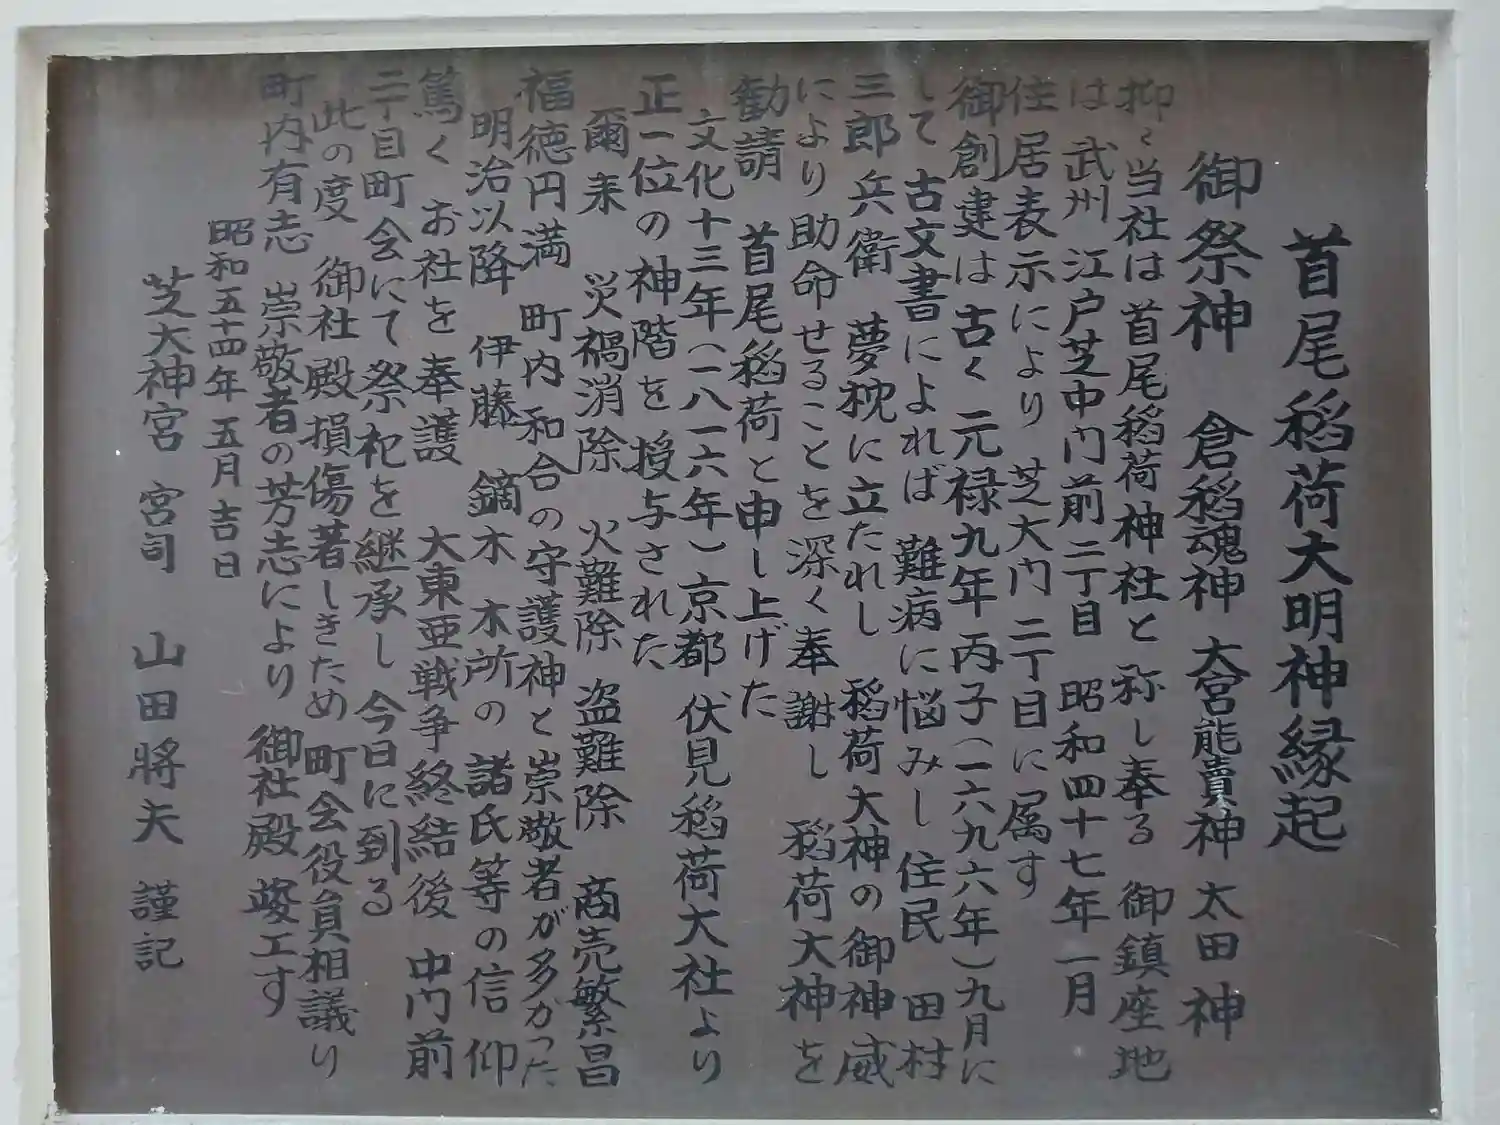 首尾稻荷大明神縁起
御祭神 倉稻魂神 大宮能賣神 太田神
抑々当社は首尾稻荷神社と称し奉る 御鎮座地
は 武州 江戸芝中門前二丁目 昭和四十七年一月
住居表示により 芝大門二丁目に属す
御創建は古く 元禄九年丙子(一六九六年)九月に
して 古文書によれば 難病に悩みし 住民 田村
三郎兵衛 夢枕に立たれし 稻荷大神の御神威
により助命せることを深く奉謝し 稻荷大神を
勸請 首尾稻荷と申し上げた
文化十三年(一八一六年)京都 伏見稻荷大社より
正一位の神階を 授与された
爾来 災禍消除 火難除 盗難除 商売繁昌
福徳円満 町内和合の守護神と崇敬者が多かった
明治以降 伊藤 鏑木 木所の諸氏等の信仰
篤く お社を奉護 大東亜戦争終結後 中門前
二丁目町会にて祭祀を継承し今日に到る
此の度 御社殿損傷著しきため町会役員相議り
町内有志 崇敬者の芳志により 御社殿 竣工す
昭和五十四年五月吉日
芝大神宮 宮司 山田將夫 謹記